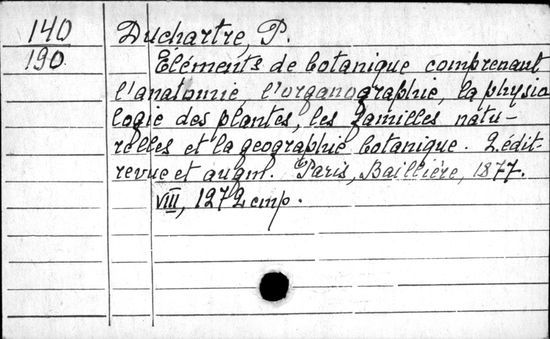 140 Duchartre, P.
190 Eléments de botanique comprenant
l'anatomie l'organographie, la physio
logie des plantes, les familles natu-
relles et la geographie botanique. 2 édit-
revue et augm. Paris, Baillière, 1877.
VIII, 1272 cmp.